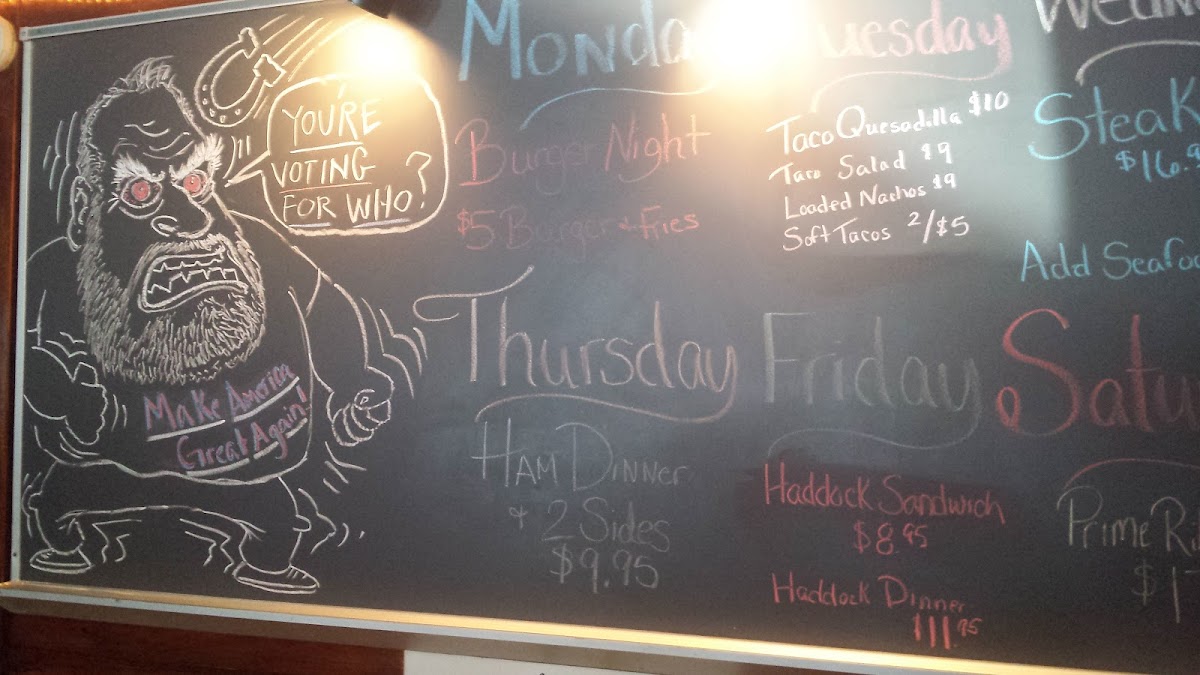 YOU'RE
VOTING
FOR WHO?
Make America
Great Again!
Monday
Burger Night
$5 Burger & Fries
Tuesday
Taco Quesadilla $10
Taco Salad $9
Loaded Nachos $9
Soft Tacos 2/$5
Steak
$16.9
Add Seafoo
Thursday
HAM DINNER
& 2 Sides
$9.95
Friday
Haddock Sandwich
$8.95
Haddock Dinner
$11.95
Satu
Prime Ri
$1